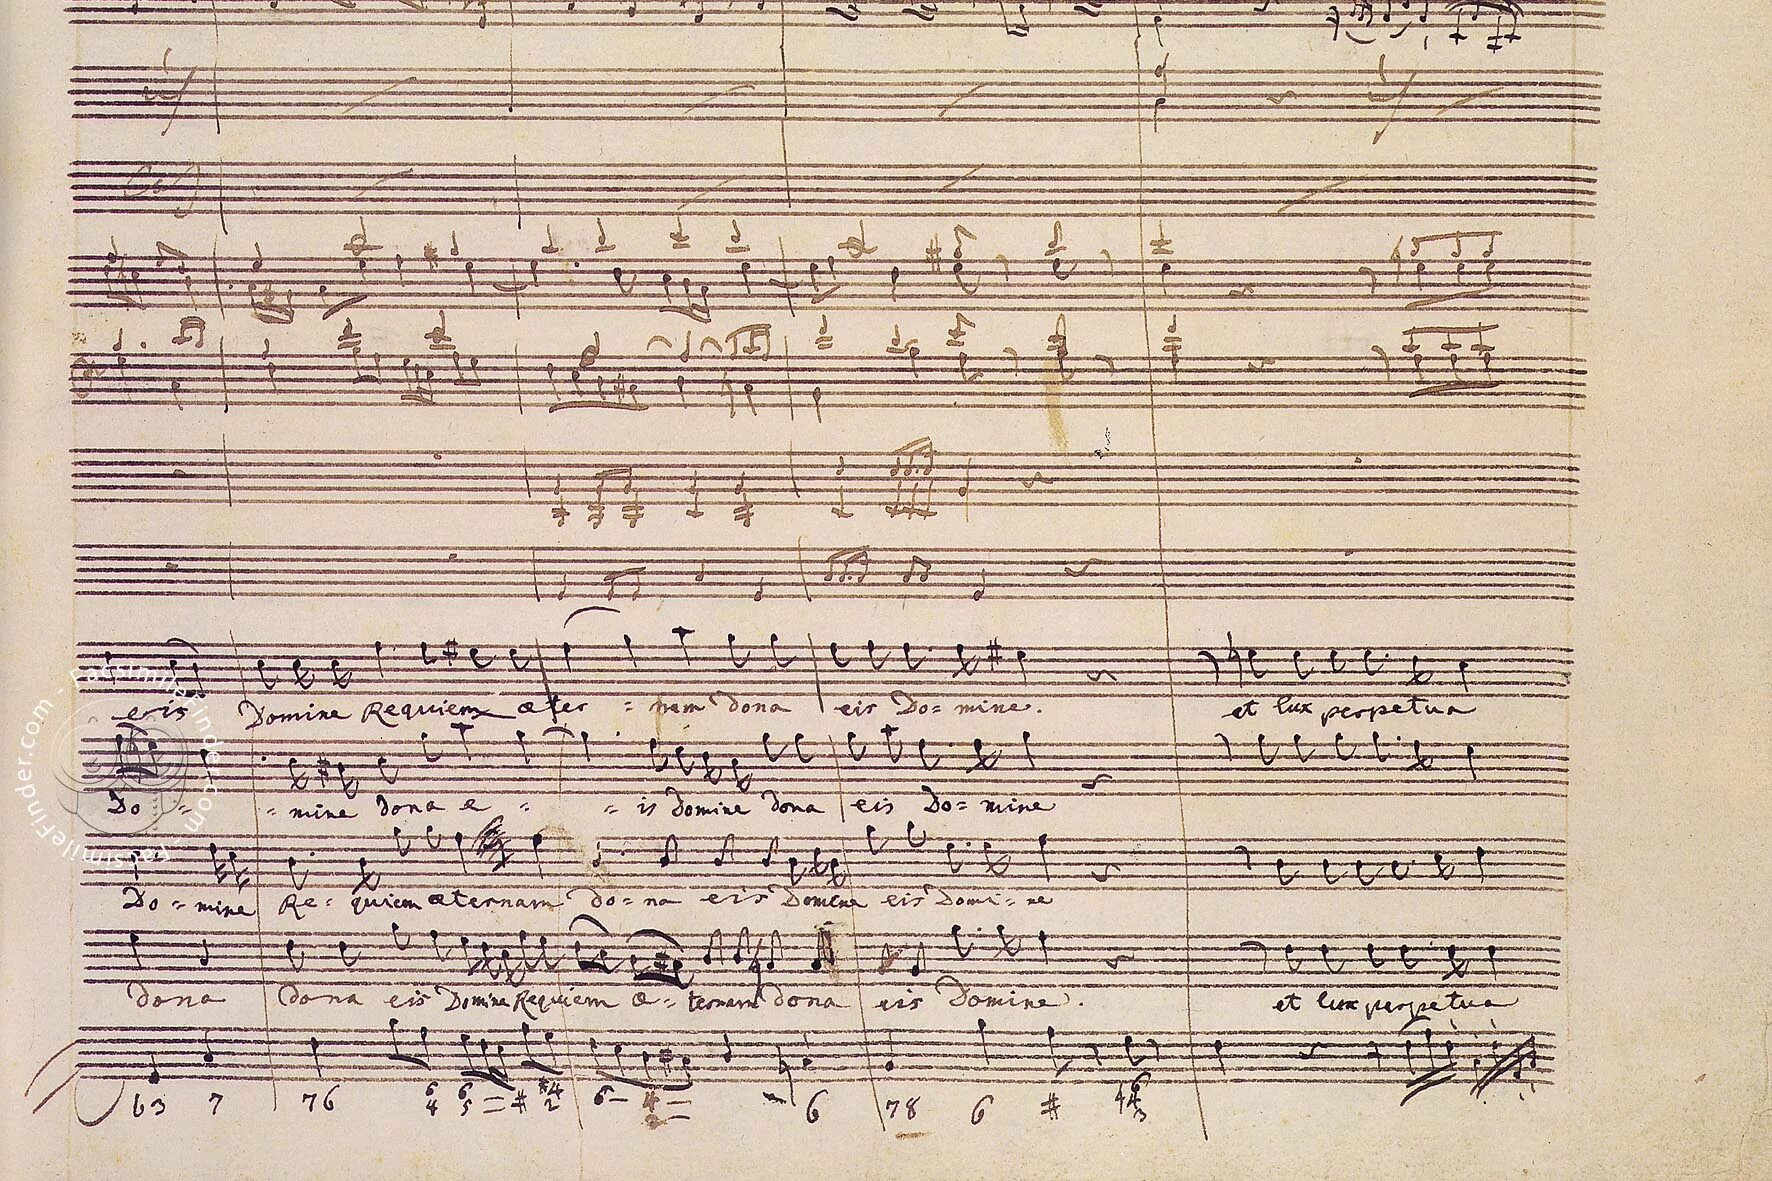 eris Domine Requiem æter = nam dona eis Do= mine. et lux perpetua
Do = = mine dona e = = is Domine dona eis Do= mine
Do= mine Re= quiem æternam do= na eis Domine eis Domi= ne
dona dona eis Domine Requiem æ= ternam dona eis Domine. et lux perpetua
6 3 7 7 6 6 4 6 5 = # #4 2 6 – 4 = 6 7 8 6 # 6 4
FacsimileFinder.com - FacsimileFinder.com -